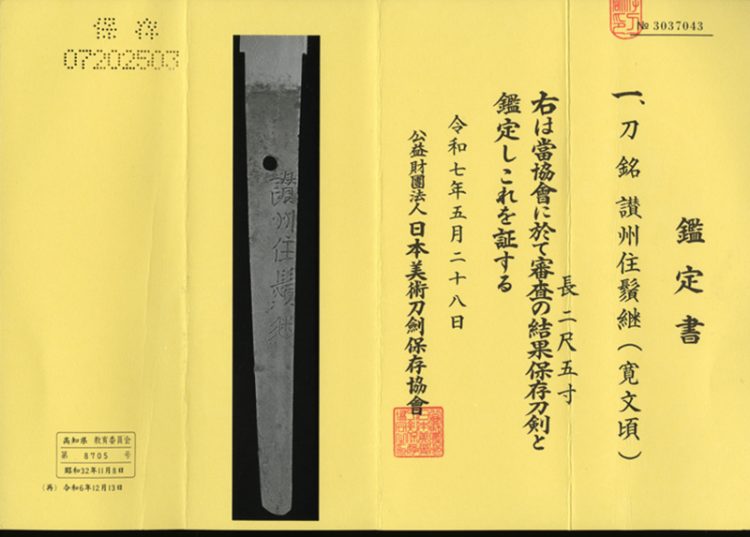 № 3037043
鑑定書
一、刀 銘 讃州住鬚継（寛文頃）
長二尺五寸
右は當協會に於て審査の結果保存刀剣と
鑑定しこれを証する
令和七年五月二十八日
公益財團法人 日本美術刀劍保存協會
讃州住鬚継
保存
07202503
高知県 教育委員会
第 8705 号
昭和32年11月8日
(再) 令和6年12月13日